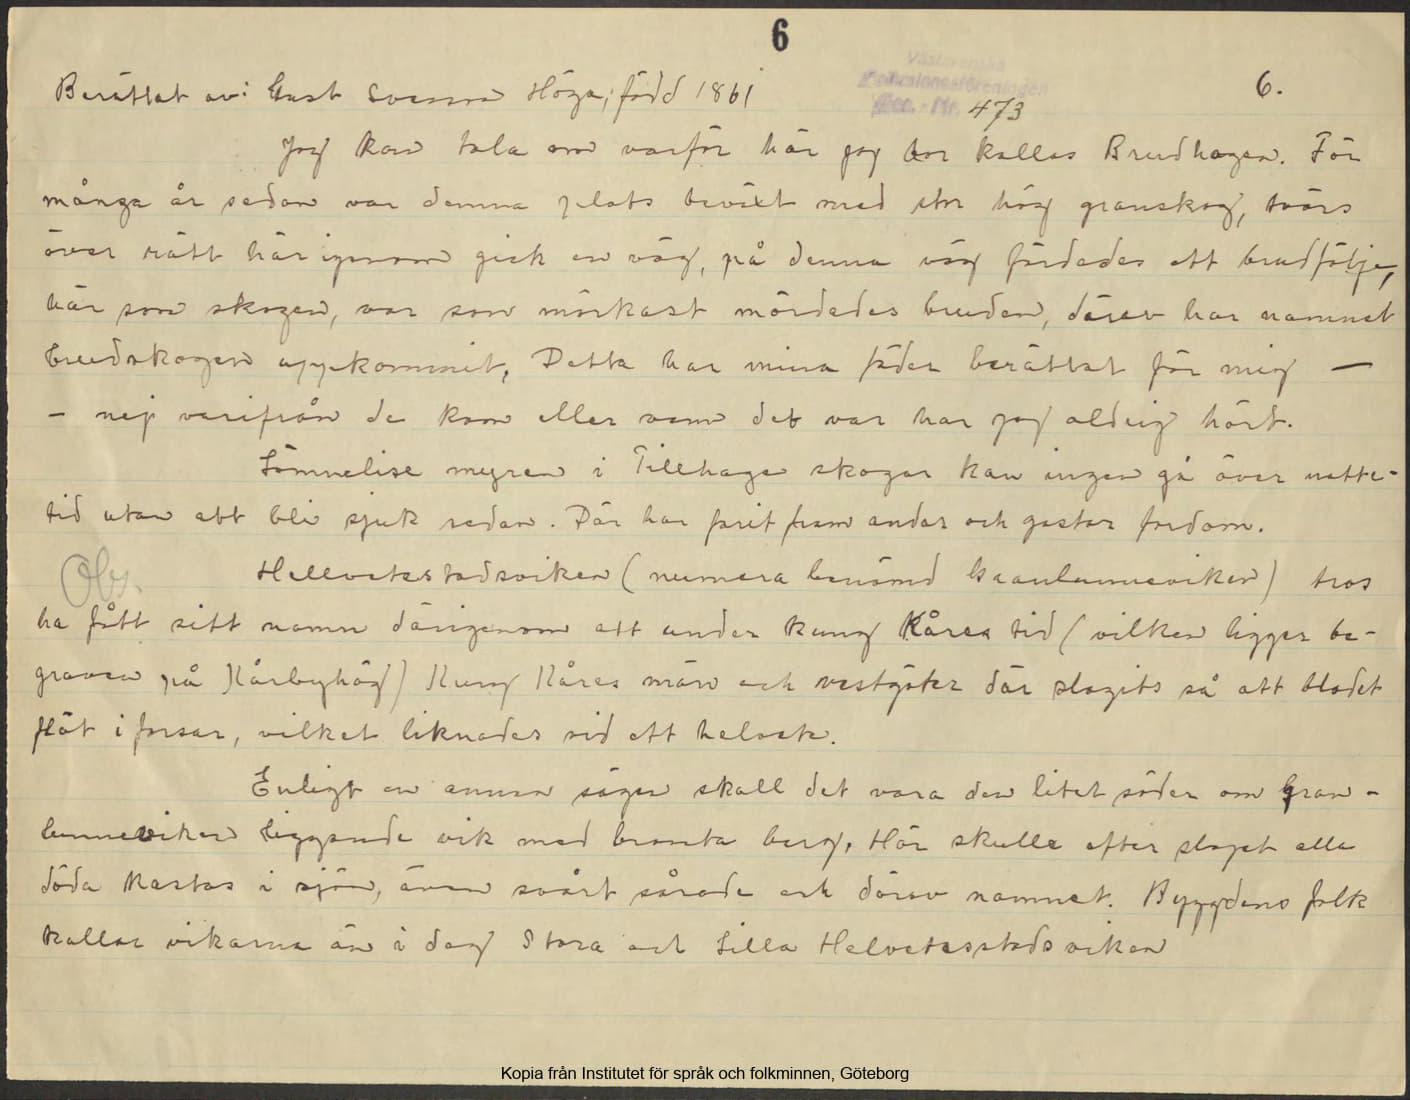 6
Västsvenska
Folkminnesföreningen
Acc. - Nr. 473
6.
Berättat av: Gust Svensson Höga, född 1861
Jag kan tala om varför här jag bor kallas Brudhagen. För
många år sedan var denna plats beväxt med stor hög granskog, tvärs
över rätt härigenom gick en väg, på denna väg färdades ett brudfölje,
här som skogen, var som mörkast mördades bruden, därav har namnet
brudskogen uppkommit, Detta har mina fäder berättat för mig —
— nej varifrån de kom eller vem det var har jag aldrig hört.
myren i Tillhaga skogar kan ingen gå över natte-
tid utan att bli sjuk sedan. Där har farit fram andar och gastar fordom.
Obs.
Helvetestadsviken (numera benämd Granlunneviken) tros
ha fått sitt namn därigenom att under kung Kåres tid (vilken ligger be-
graven på Kårbyhög) Kung Kåres män och vestgöter där slagits så att blodet
flöt i forsar, vilket liknades vid ett helvete.
Enligt en annan sägen skall det vara den litet söder om Gran-
lunneviken liggande vik med branta berg. Här skulle efter slaget alla
döda kastas i sjön, även svårt sårade och därav namnet. Byggdens folk
kallar vikarna än i dag Stora och Lilla Helvetesstadsviken
Kopia från Institutet för språk och folkminnen, Göteborg